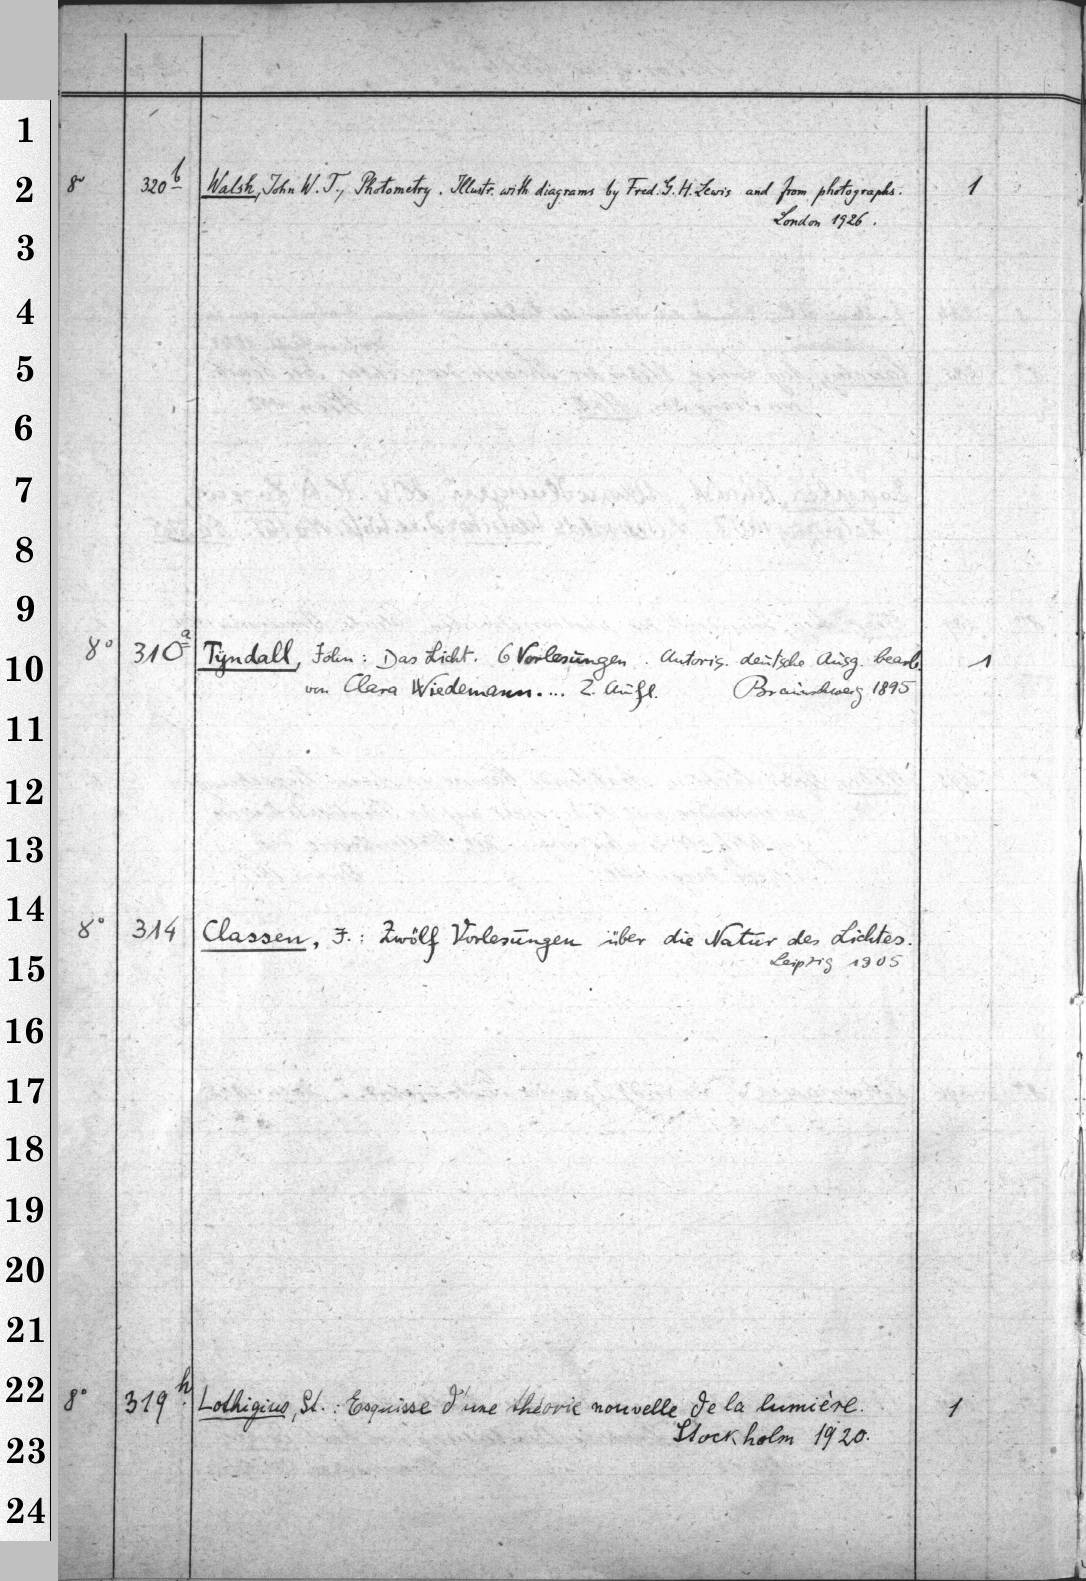 1
2
3
4
5
6
7
8
9
10
11
12
13
14
15
16
17
18
19
20
21
22
23
24
8° 320 b Walsh, John W. T., Photometry. Illustr. with diagrams by Fred. G. H. Lewis and from photographs. 1
London 1926.
8° 310 a Tyndall, John: Das Licht. 6 Vorlesungen. Autoris. deutsche Ausg. bearb. 1
von Clara Wiedemann.... 2. Aufl. Braunschweig 1895
8° 314 Classen, J.: Zwölf Vorlesungen über die Natur des Lichtes.
Leipzig 1905
8° 319 h Lothigius, St.: Esquisse d'une théorie nouvelle de la lumière. 1
Stockholm 1920.